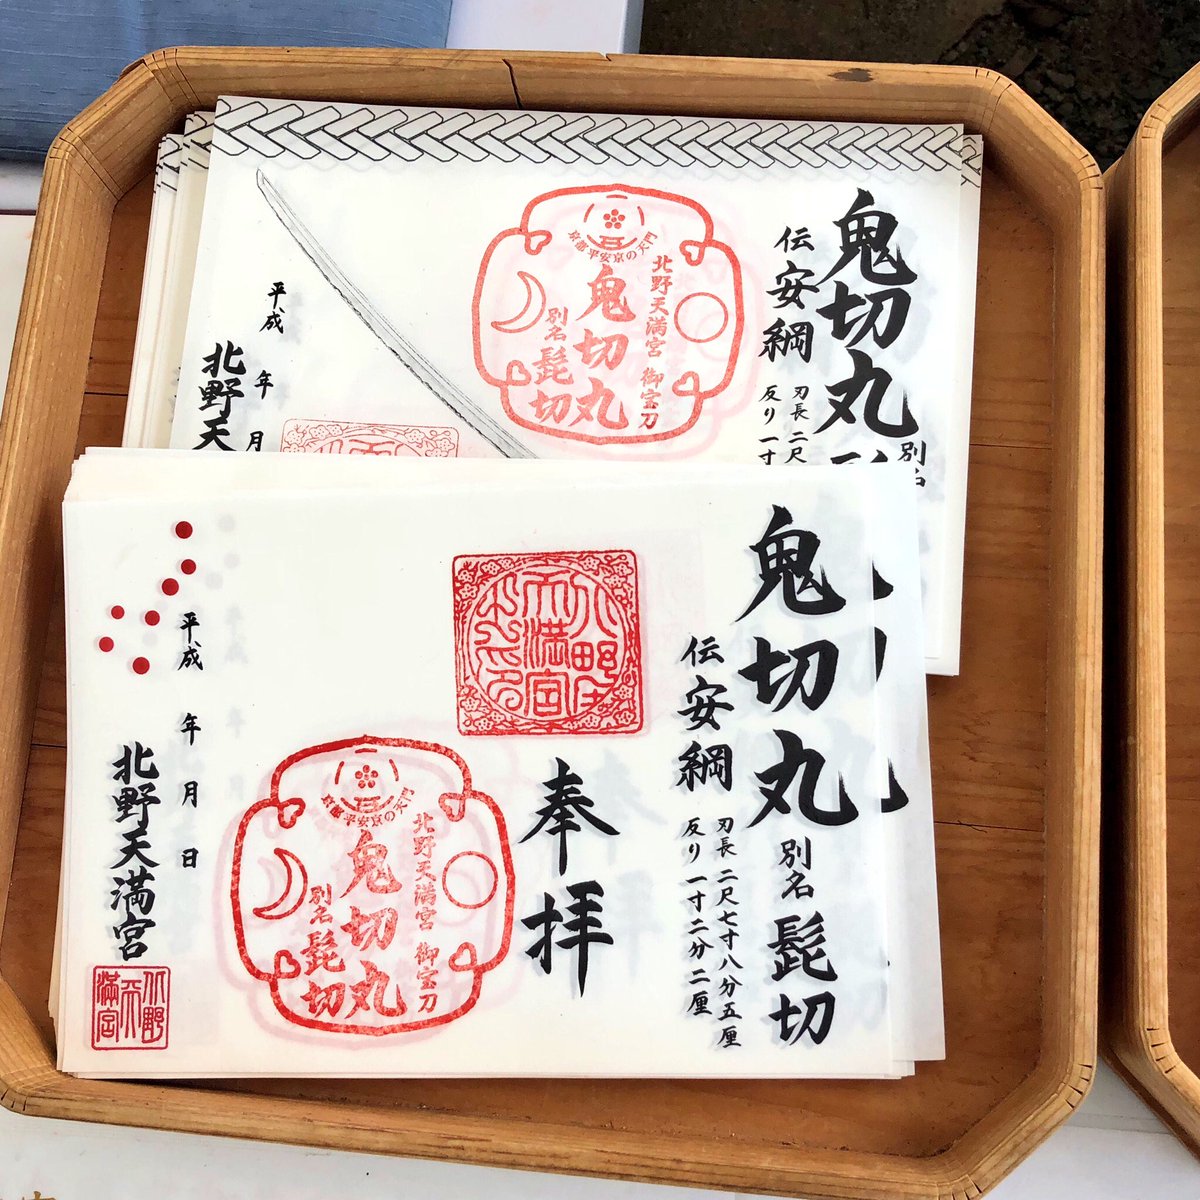 鬼切丸
別名
伝安綱
刃長 二尺
反り 一寸
京都平安京の天門
北野天満宮 御宝刀
鬼切丸
別名 髭切
平成 年 月
北野天
鬼切丸 別名 髭切
伝安綱
刃長 二尺七寸八分五厘
反り 一寸二分二厘
奉拝
京都平安京の天門
北野天満宮 御宝刀
鬼切丸
別名 髭切
平成 年 月 日
北野天満宮
北野天満宮